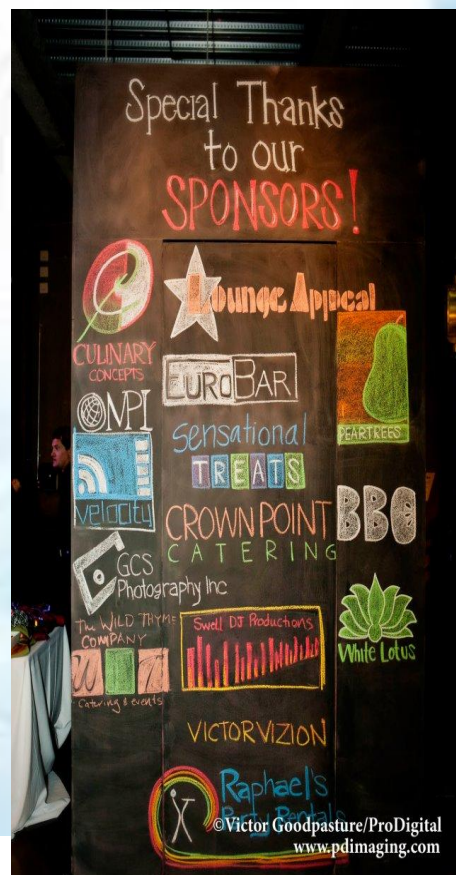 Special Thanks
to our
SPONSORS!
CULINARY
CONCEPTS
NPI
velocity
GCS
Photography Inc
The WILD THYME
COMPANY
WTT
Catering & events
Lounge Appeal
EUROBAR
Sensational
TREATS
CROWN POINT
CATERING
Swell DJ Productions
VICTORVIZION
Raphael's
Party Rentals
PEARTREES
BBQ
White Lotus
©Victor Goodpasture/ProDigital
www.pdimaging.com